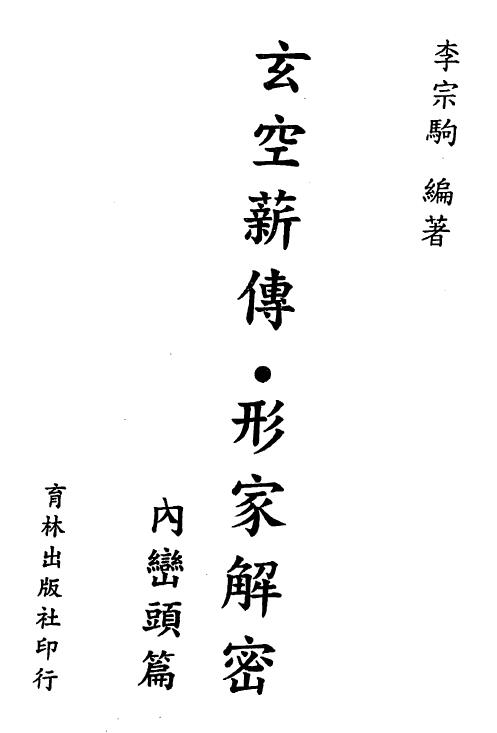 李宗駒 編著
玄空薪傳・形家解密
內巒頭篇
育林出版社印行